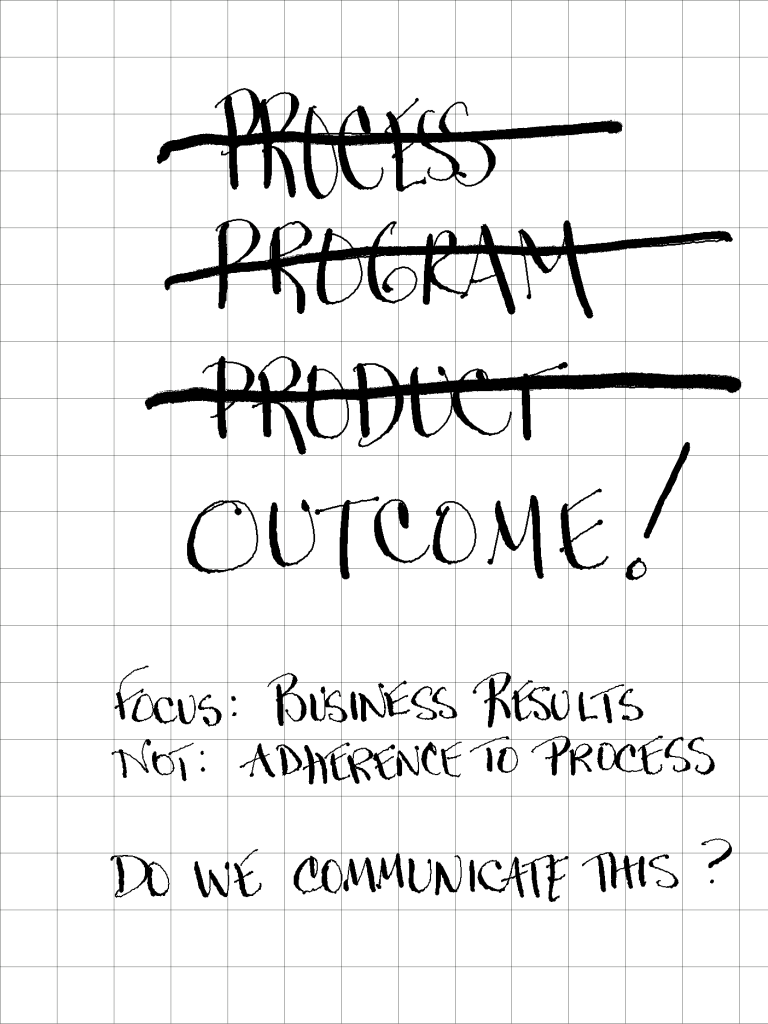 PROCESS
PROGRAM
PRODUCT
OUTCOME!
FOCUS: BUSINESS RESULTS
NOT: ADHERENCE TO PROCESS
DO WE COMMUNICATE THIS?